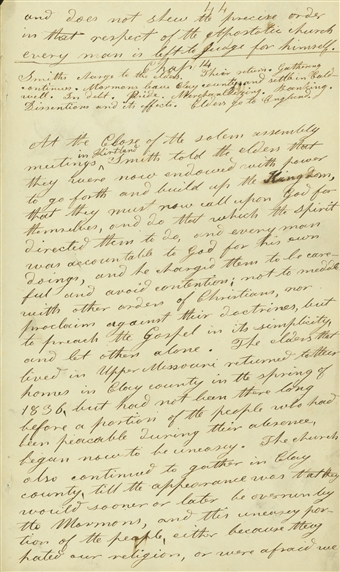 44
and does not shew the precise order
in that respect of the Apostolic church
every man is left to judge for himself.
Chapt 14
Smiths charge to the elders. Their return. Gathering
continues. Mormons leave Clay county and settle in Cald-
well. In debt. Pride. Merchandizing. Banking.
Dissentions and its effects. Elders go to England.
At the close of the solem assembly
meetings in Kirtland Smith told the elders that
they were now endowed with power
to go forth and build up the Kingdom,
that they must now call upon God for
themselves, and do that which the Spirit
directed them to do, and every man
was accountable to God for his own
doings, and he charged them to be care-
ful and avoid contention; not to meddle
with other orders of Christians, nor
proclaim against their doctrines, but
to preach the Gospel in its simplicity,
and let others alone. The elders that
lived in Upper Missouri returned to their
homes in Clay county in the spring of
1836, but had not been there long
before a portion of the people who had
been peacable during their absence,
began now to be uneasy. The church
also continued to gather in Clay
county, till the appearance was that they
would sooner or later be overrun by
the Mormons, and this uneasy por-
tion of the people, either because they
hated our religion, or were afraid we